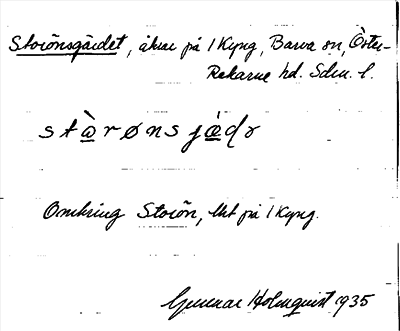 Storönsgärdet, åkrar på 1 Kyng, Barva sn, Öster-
Rekarne hd. Sdm. l.
stàrønsjǽdɽ
Omkring Storön, lht på 1 Kyng.
Gunnar Holmquist 1935